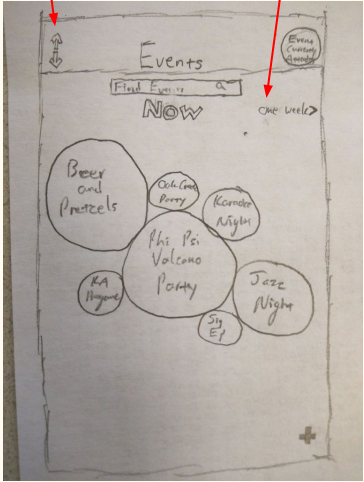 Events
Event
Currently
Find Events
NOW
one week>
Beer
and
Pretzels
Party
Karaoke
Night
Phi Psi
Volcano
Party
KA
Jazz
Night
Sig
Ep